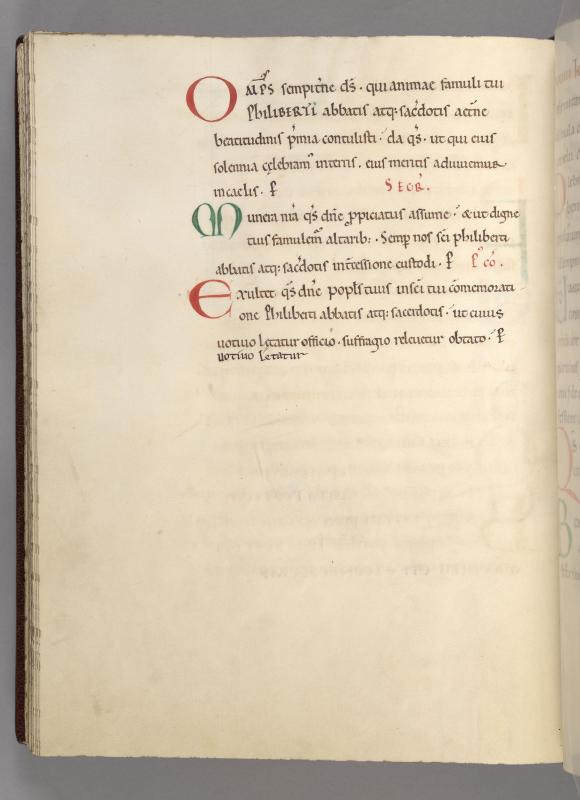 OMP̄S sempit̄ne d̄s · qui animae famuli tui
PhILIBERTI abbatis atq; sac̄dotis aet̄ne
beatitudinis p̄mia contulisti · da q̄s · ut qui eius
solennia celebram᾽ interris, eius meritis adiuuemur
incaelis · P̄ SECR̄.
Munera n̄ra q̄s dn̄e p̱piciatus assume · & ut digne
tuis famulem᾽ altarib; · Semp̱ nos s̄ci philiberti
abbatis atq; sac̄dotis int̄cessione custodi · P̄ P᾽ cō.
Exultet q̄s dn̄e popl̄s tuus insc̄i tui cōmemorati
one Philiberti abbatis atq; sacerdotis · ut cuius
uotiuo lętatur officio · suffragio releuetur obtato · P̄
uotiuo lętatur